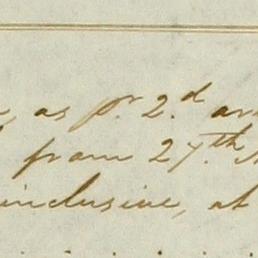 as pr. 2.d
from 27.th
inclusive, at